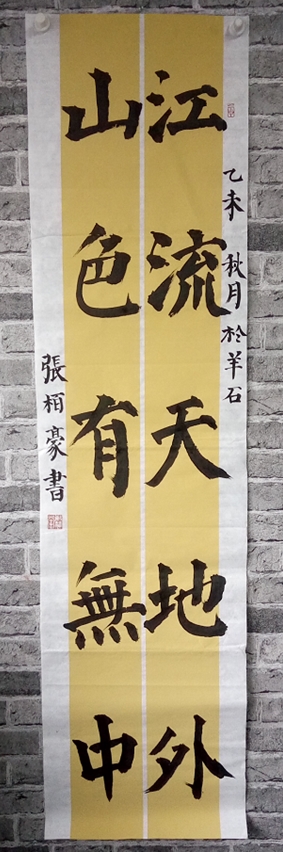 乙未 秋月 於羊石
江流天地外
山色有無中
張栢豪書